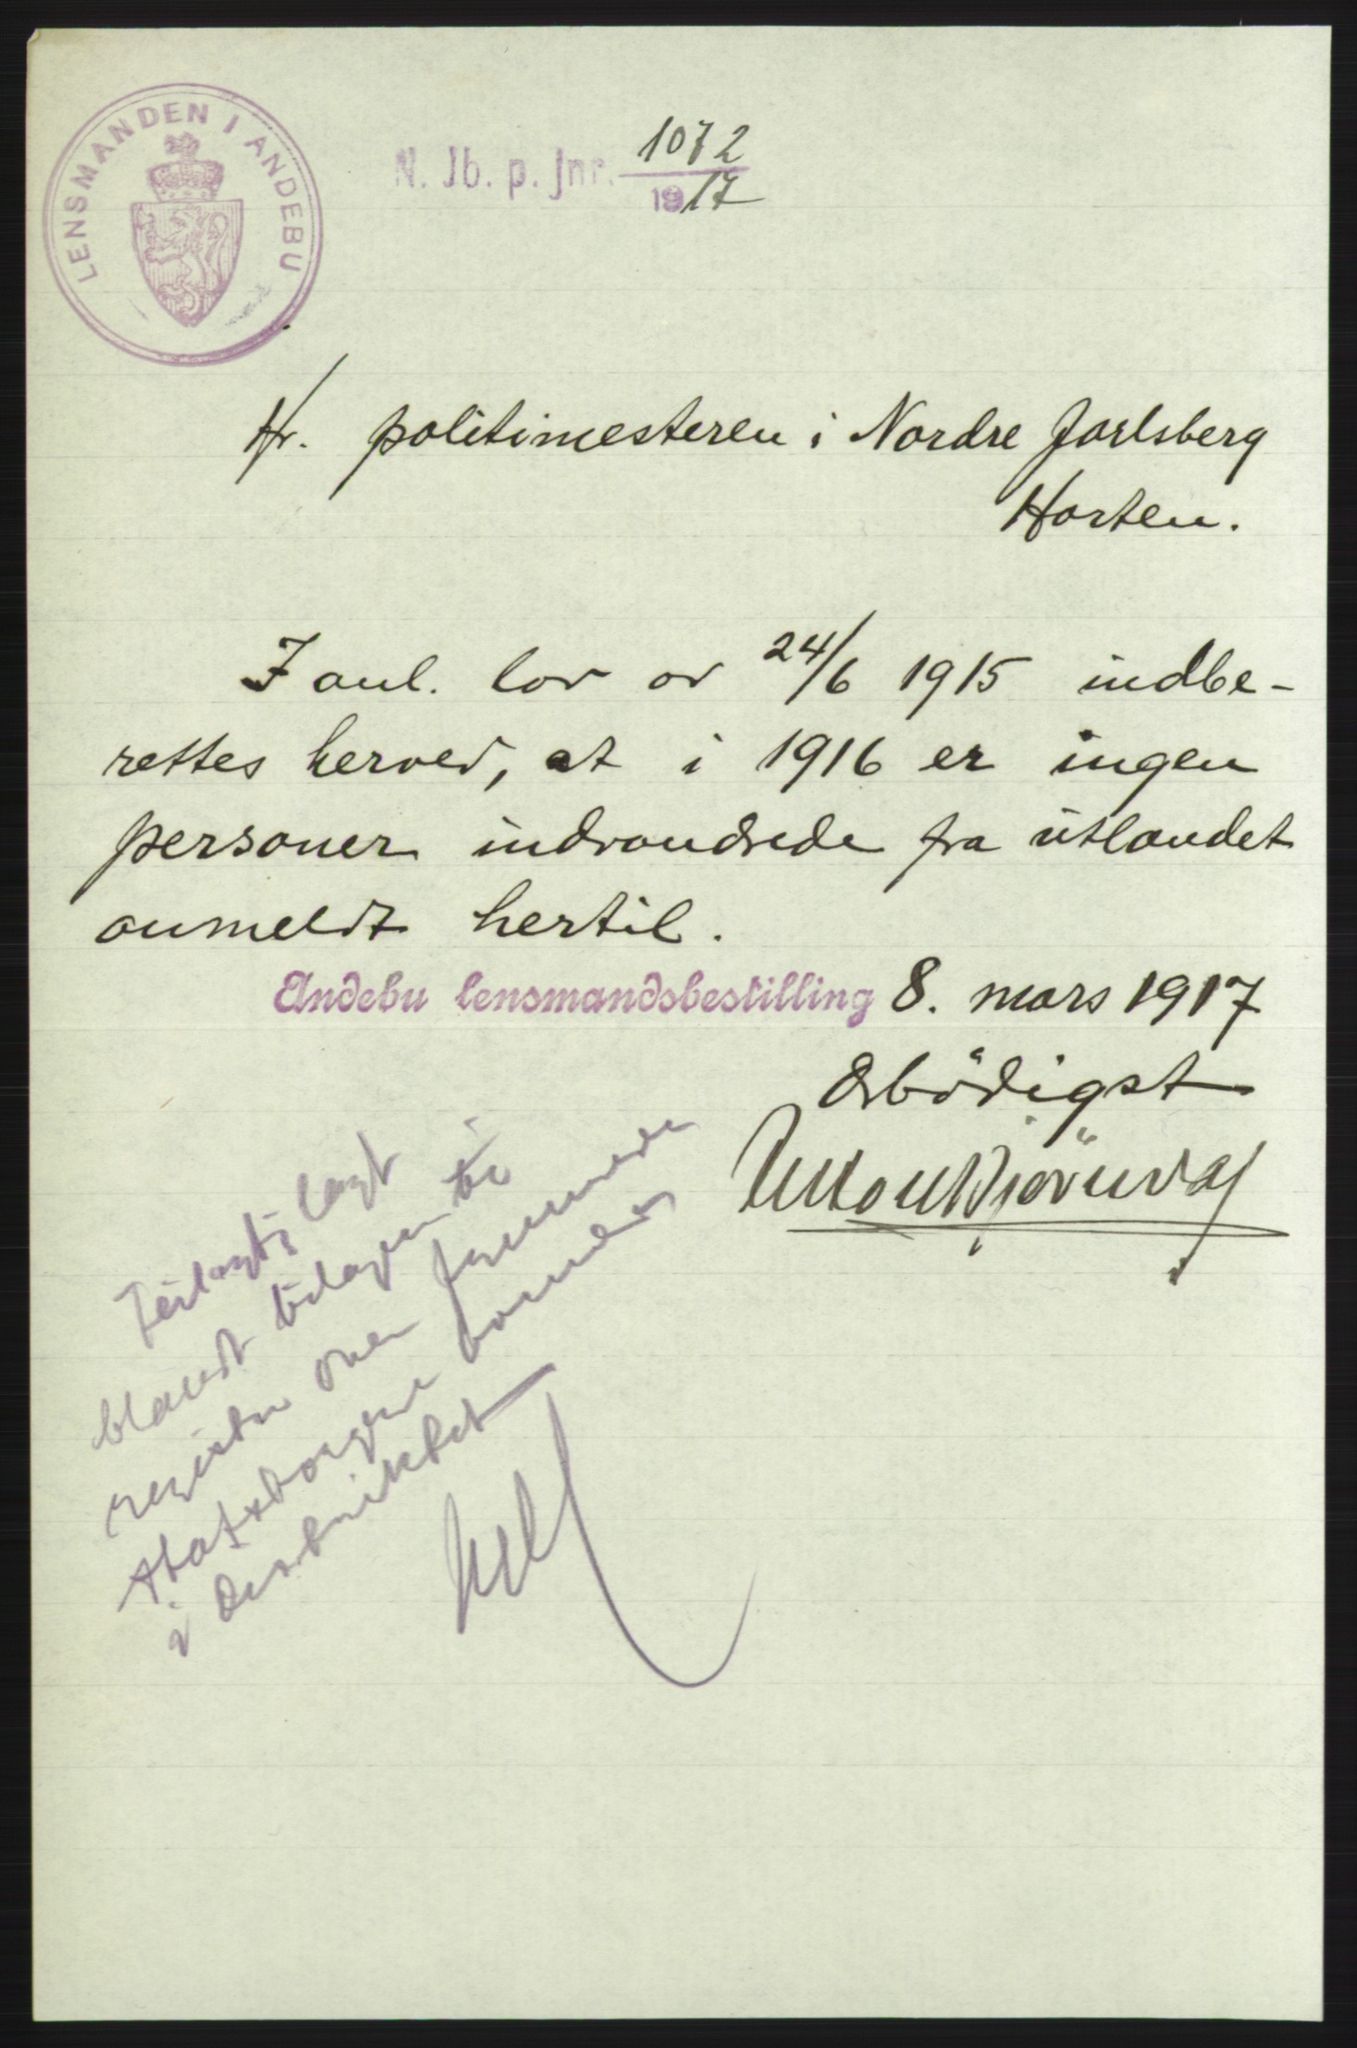 LENSMANDEN I ANDEBU
N. Jb. p. jnr. 1072
1917
Hr. politimesteren i Nordre Jarlsberg
Horten.
I anl. lov av 24/6 1915 indbe-
rettes herved, at i 1916 er ingen
personer indvandrede fra utlandet
anmeldt hertil.
Andebu lensmandsbestilling 8. mars 1917
Ærbödigst
blandt bilagene til
register over fremmede
statsborgere
i distriktet